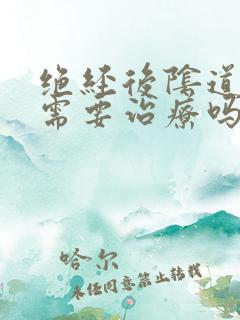 绝经后陰道
需要治療吗
哈尔
未经同意禁止转载